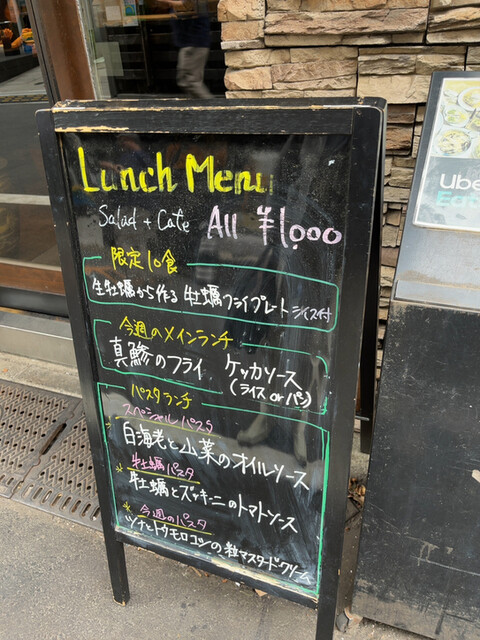 Lunch Menu
Salad + Cafe All ¥1,000
限定10食
生牡蠣から作る 牡蠣フライプレート ライス付
今週のメインランチ
真鯵のフライ ケッカソース
(ライス or パン)
パスタランチ
スペシャルパスタ
白海老と山菜のオイルソース
牡蠣パスタ
牡蠣とズッキーニのトマトソース
今週のパスタ
ツナとトウモロコシの粒マスタードクリーム
Uber
Eats